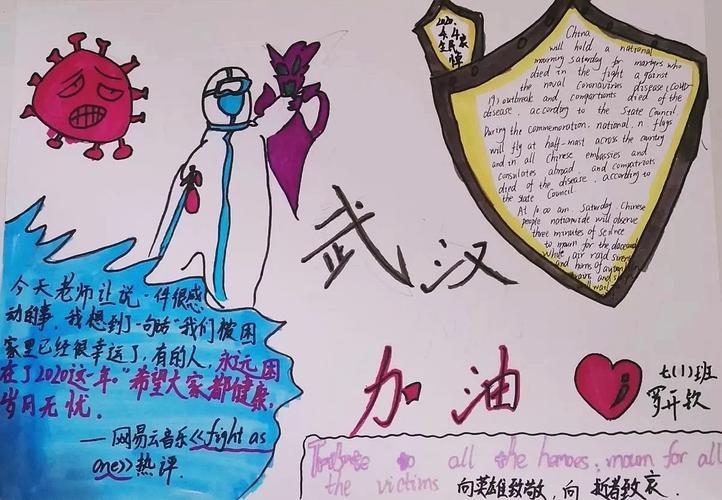 2020.
China
will hold a national
mourning Saturday for martyrs who
died in the fight against
the noval coronavirus disease (COVID-
19) outbreak and compartriots died of the
disease, according to the State Council.
During the commemoration, national n flags
will fly at half-mast across the country
and in all Chinese embassies and
consulates abroad. and compatriots
died of the disease, according to
the State Council.
At 10:00 am Saturday, Chinese
people nationwide will observe
three minutes of silence
to mourn for the deceased
while air raid sirens
and horns of
武汉
加油
今天老师让说一件很感
动的事，我想到了一句话"我们被困
家里已经很幸运了，有的人，永远困
在了2020这一年。"希望大家都健康，
岁月无忧。
——网易云音乐<<fight as
one>>热评.
七(1)班
罗开钦
Tribute to all the heroes, mourn for all
the victims 向英雄致敬，向逝者致哀.